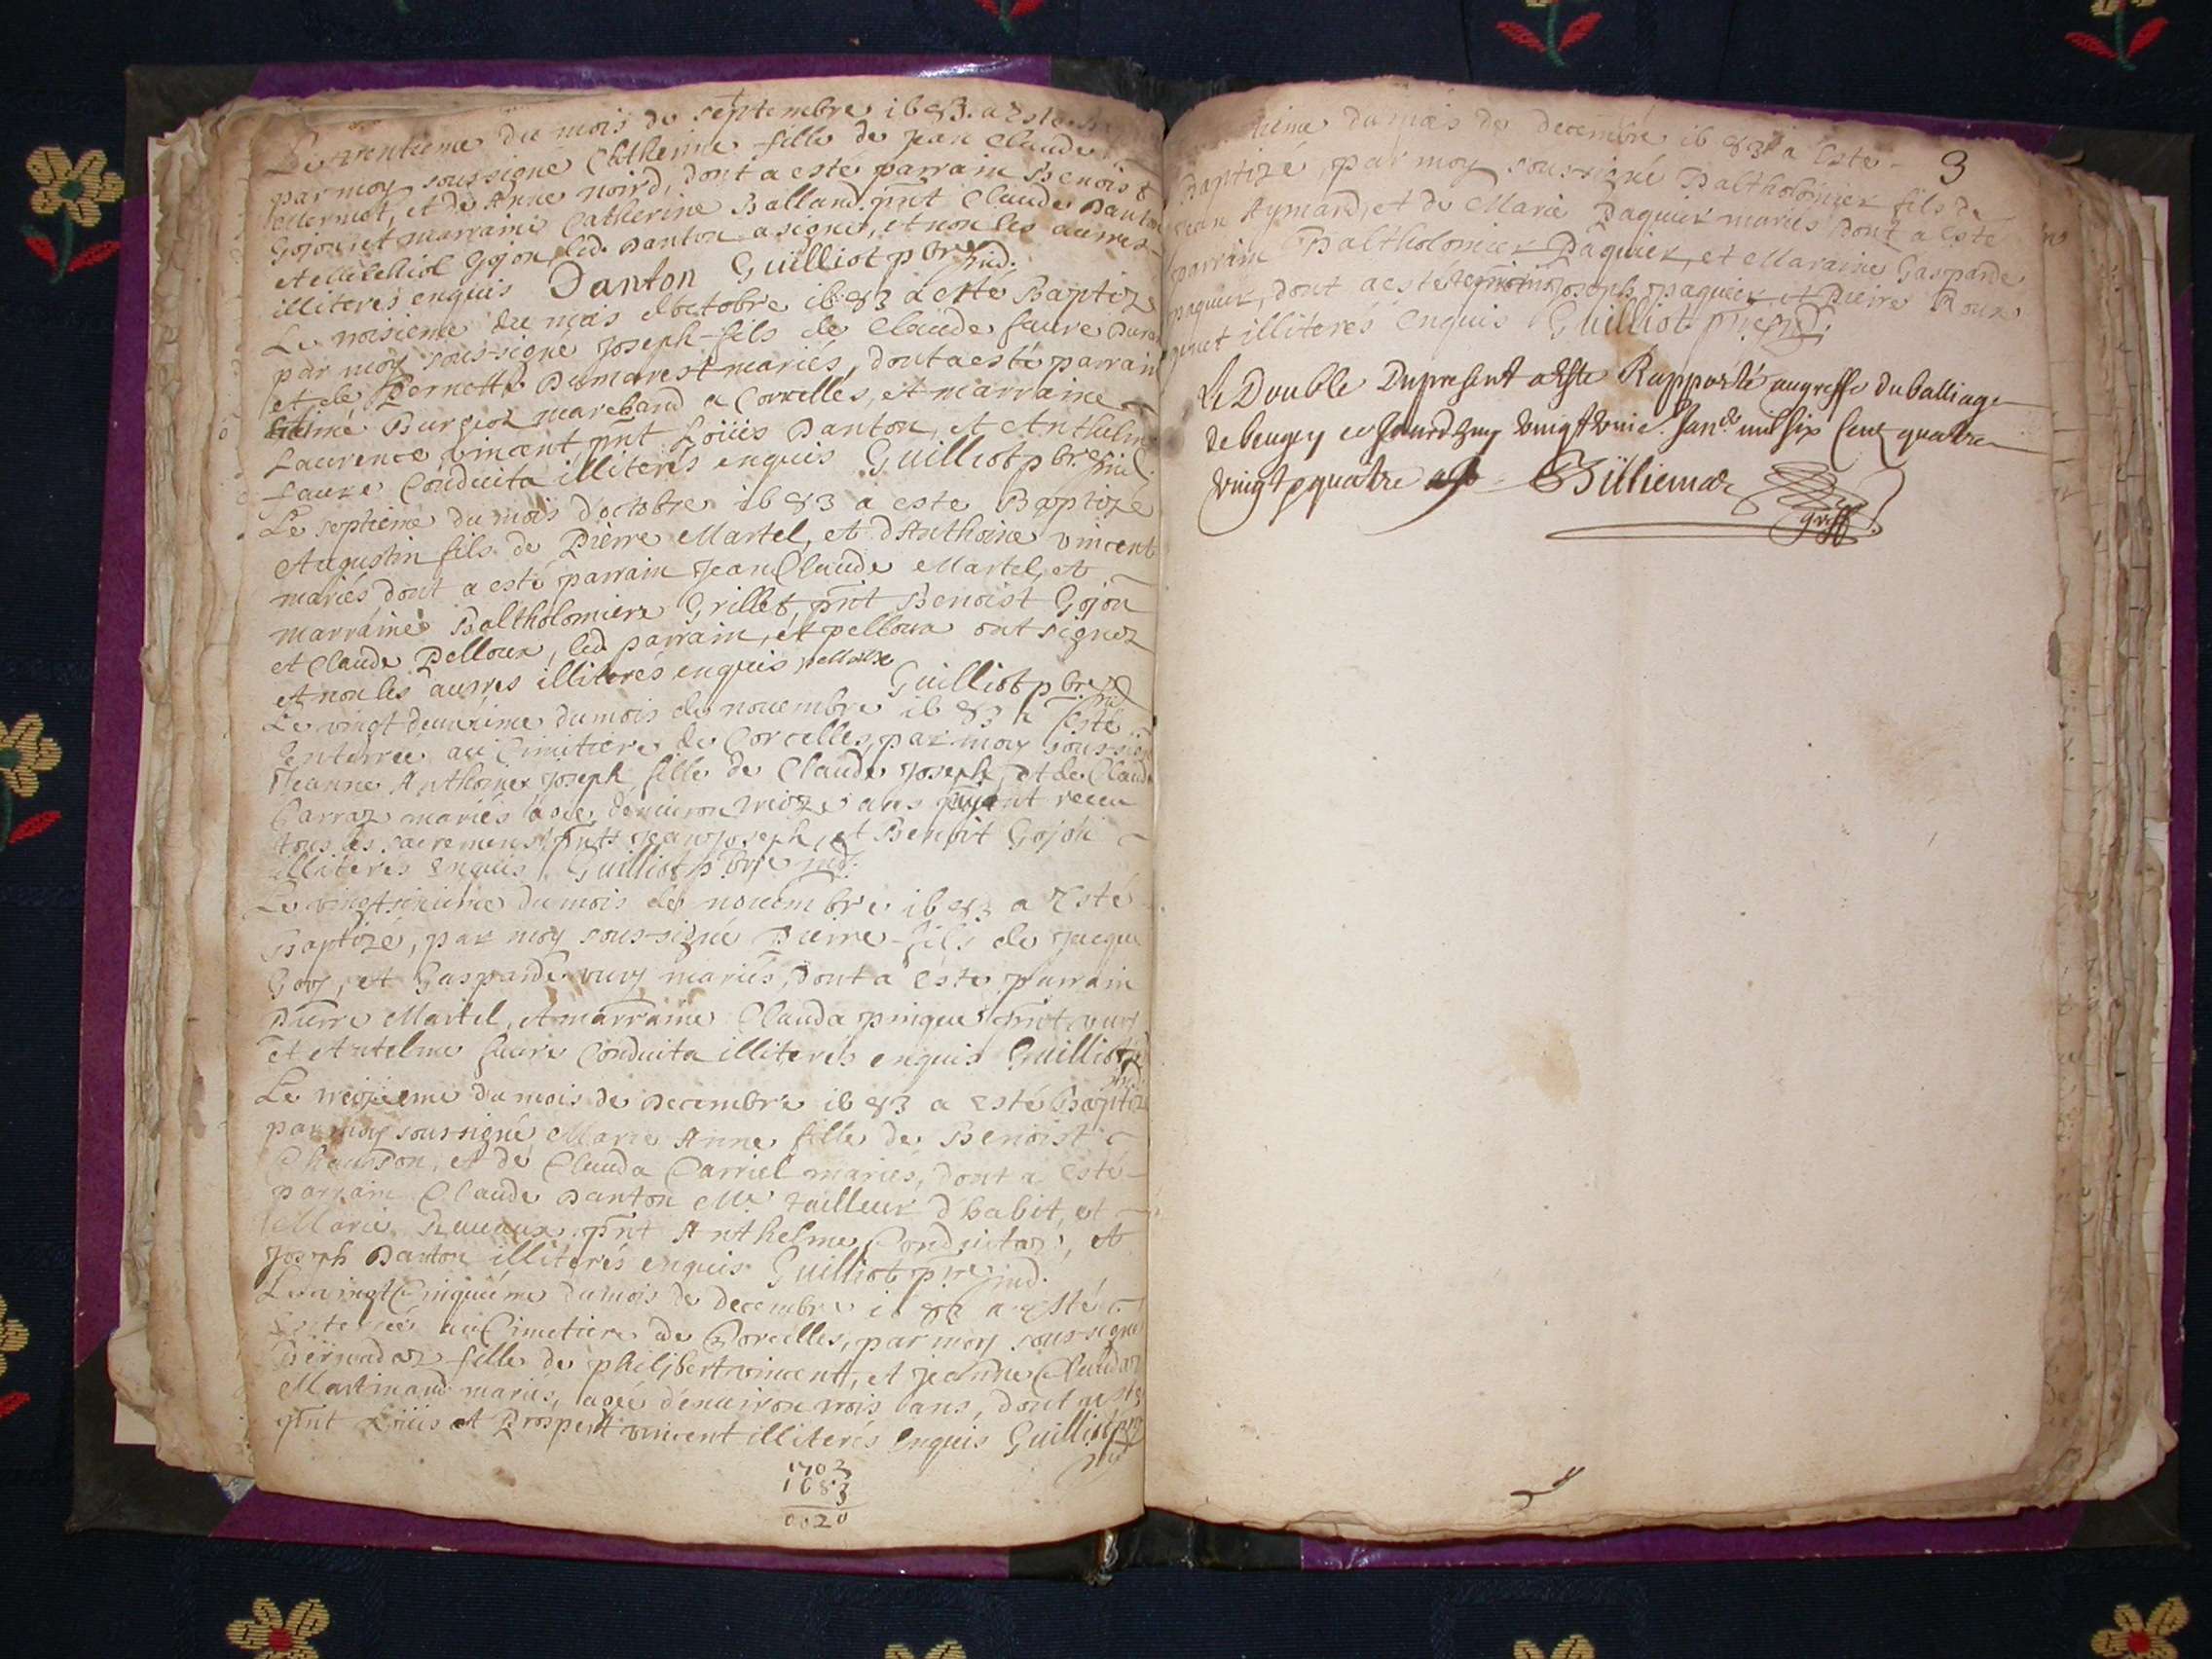 Le trentieme du mois de septembre 1683. a este
par moy soussigné Catherine fille de Jean Claude
Mermet, et de Anne noird, dont a esté parrain Benoist
Gojon et marraine Catherine Balland. pnt Claude Danton
et Melchiol Gojon, led. Danton a signé, et non les autres
illiterés enquis Danton Guilliot pbre ind.
Le troisieme du mois d'octobre 1683 a este Baptizé
par moy sous-signé Joseph fils de Claude faure
et de Pernette Dumarest mariés, dont a esté parrain
Burgiot marchand a Corcelles, et marraine
Laurence vincent, pnt Loüis Danton, et Anthelme
faure Conduita illiterés enquis Guilliot pbre ind.
Le septieme du mois d'octobre 1683 a este Baptizé
Augustin fils de Pierre Martel, et d'Anthoine vincent
mariés dont a esté parrain Jean Claude Martel, et
marraine Baltholomiere Grillet, pnt Benoist Gojon
et Claude Pelloux, led parrain, et pelloux ont signez
et non les autres illiterés enquis pelloux
Guilliot pbre ind
Le vingt deuxieme du mois de nouembre 1683 a esté
Enterree au Cimitiere de Corcelles, par moy soussigné
Jeanne Anthoinex Joseph fille de Claude Joseph, et de Claude
Carraz mariés agée denuiron treize ans ayant receu
tous les sacremens pnts Jean Joseph, et Benoit Gojon
illiterés enquis Guilliot pbre ind.
Le vingt du mois de nouembre 1683 a Esté
Baptizé, par moy sous-signé Pierre fils de Jacque
Goy, et Gasparde vuy mariés, dont a este parrain
Pierre Martel, et marraine Clauda pinque pnt vuy
et Antelme faure Conduita illiterés enquis Guilliot
Le treizieme du mois de Decembre 1683 a esté Baptizé
par moy soussigné Marie Anne fille de Benoist
Chaudon, et de Clauda Carriel mariés, dont a Esté
parrain Claude Danton Mr. tailleur d'habit, et
Marie pnt Anthelme Conduitaz, et
Joseph Danton illiterés enquis Guilliot pre ind.
Le vingt Cinquiéme du mois de decembre 1683 a Esté
Enterrée au Cimetiere de Corcelles, par moy sous-signé
fille de philibert vincent, et Jeanne Claudaz
Martinand mariés, agée d'enuiron trois ans, dont a este
pnt Loüis et Prosper vincent illiterés Enquis Guilliot
1703
1683
0020
3
du mois de decembre 1683 a Este
Baptizé, par moy sous-signé Baltholomier fils de
Jean Aymard, et de Marie Paquier mariés dont a este
parrain Baltholomier Paquier, et Maraine Gasparde
paquier, dont a esté Joseph paquier et Pierre Roux
illiterés Enquis Guilliot
Le Double Du present a Este Rapporté au greffe du balliage
de beugey ce Jourdhuy vingt Janr mil six Cent quatre
vingt quatre Billiemaz
greff.